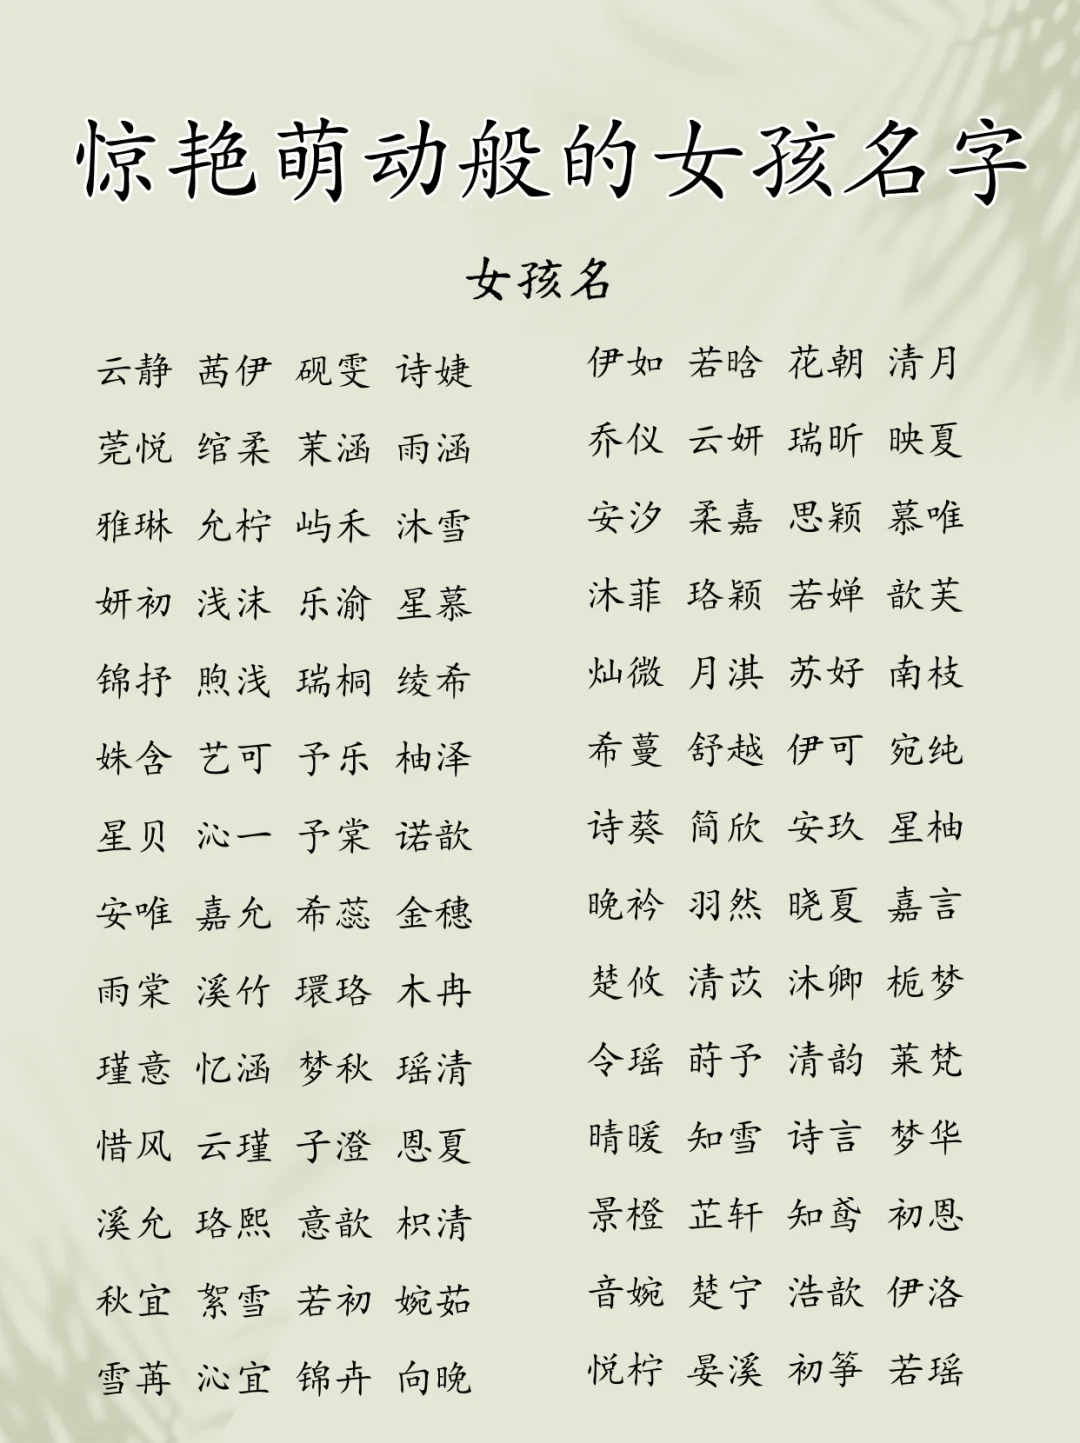 惊艳萌动般的女孩名字
女孩名
云静 茜伊 砚雯 诗婕
莞悦 绾柔 茉涵 雨涵
雅琳 允柠 屿禾 沐雪
妍初 浅沫 乐渝 星慕
锦抒 煦浅 瑞桐 绫希
姝含 艺可 予乐 柚泽
星贝 沁一 予棠 诺歆
安唯 嘉允 希蕊 金穗
雨棠 溪竹 環珞 木冉
瑾意 忆涵 梦秋 瑶清
惜风 云瑾 子澄 恩夏
溪允 珞熙 意歆 枳清
秋宜 絮雪 若初 婉茹
雪苒 沁宜 锦卉 向晚
伊如 若晗 花朝 清月
乔仪 云妍 瑞昕 映夏
安汐 柔嘉 思颖 慕唯
沐菲 珞颖 若婵 歆芙
灿微 月淇 苏好 南枝
希蔓 舒越 伊可 宛纯
诗葵 简欣 安玖 星柚
晚衿 羽然 晓夏 嘉言
楚攸 清苡 沐卿 栀梦
令瑶 莳予 清韵 莱梵
晴暖 知雪 诗言 梦华
景橙 芷轩 知鸢 初恩
音婉 楚宁 浩歆 伊洛
悦柠 晏溪 初筝 若瑶